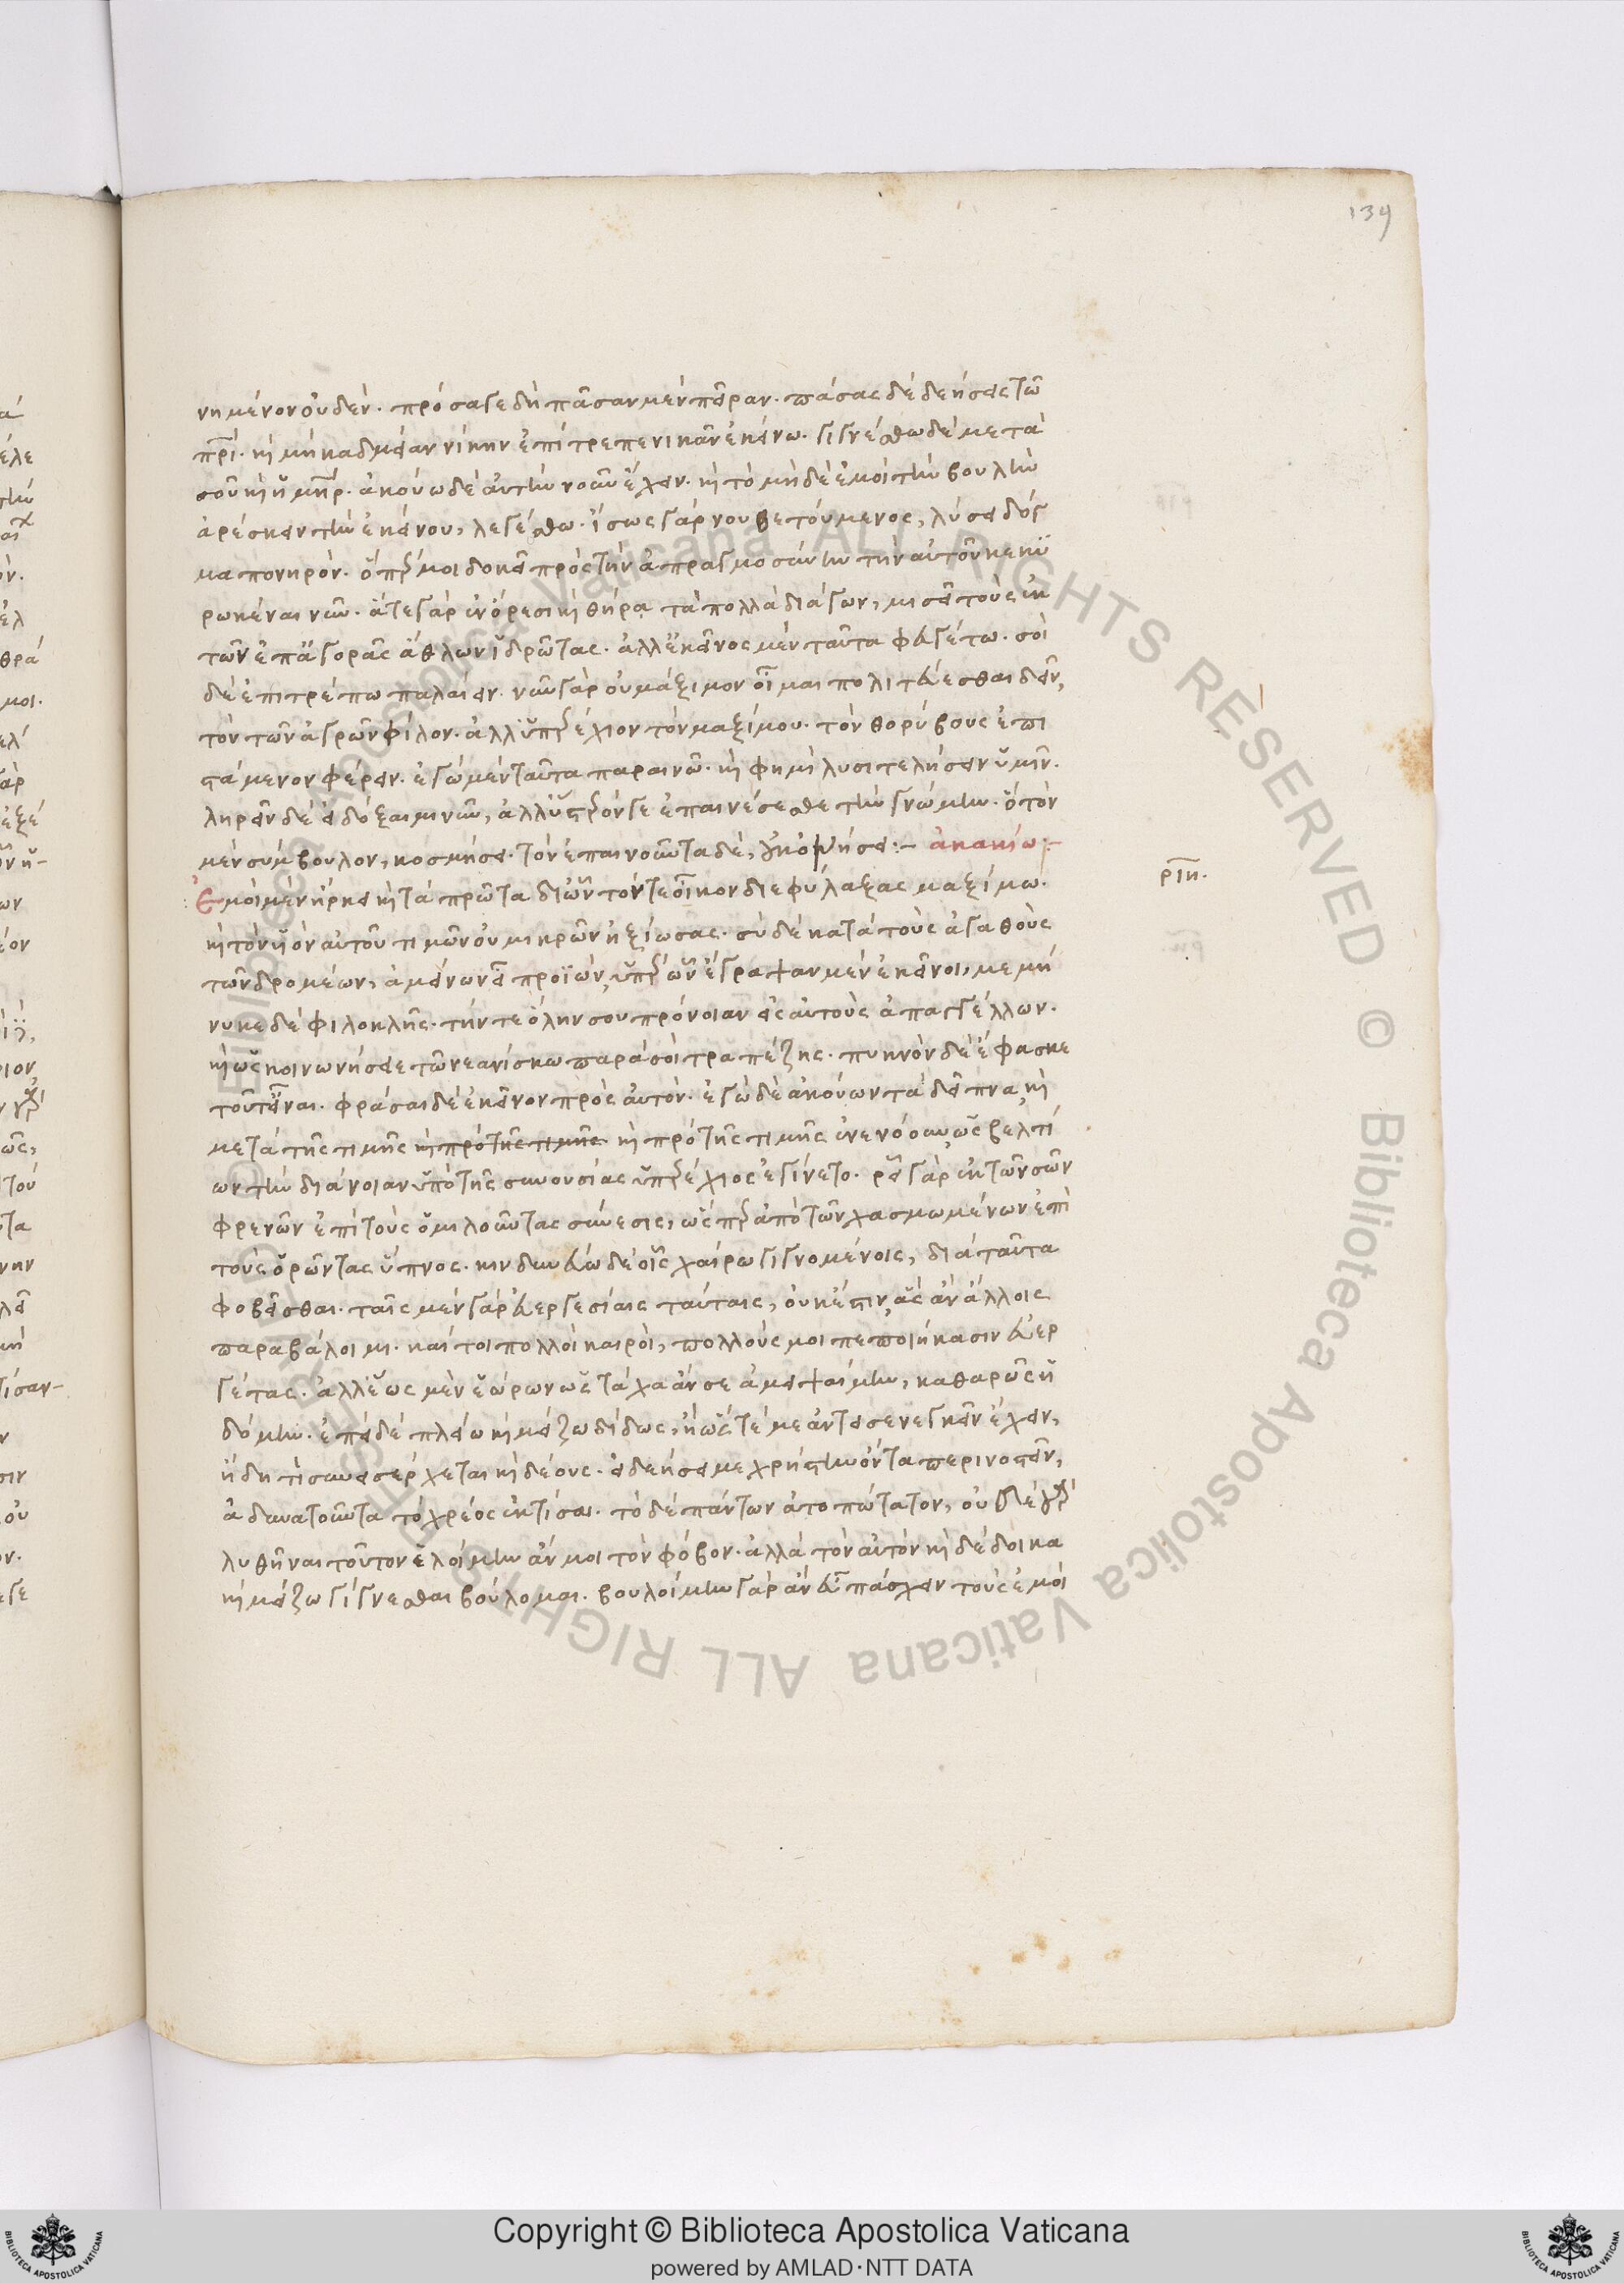 139
νημένον οὐδέν. πρόσαγε δὴ πᾶσαν μὲν πεῖραν. πάσας δὲ δεήσεις τῶ
πρί. κὶ μὴ καδμείαν νίκην ἐπίτρεπε νικᾶν ἐκείνω. γιγνέσθω δὲ μετὰ
σοῦ κὶ ἡ μηρ. ἀκούω δὲ αὐτὴν νοῦν ἔχειν. κὶ τὸ μηδὲ ἐμοὶ τὴν βουλὴν
ἀρέσκειν τὴν ἐκείνου, λεγέσθω. ἴσως γὰρ νουθετούμενος, λύσει δόγ
μα πονηρόν. ὅπερ μοι δοκεῖ πρὸς τὴν ἀπραγμοσύνην τὴν αὐτοῦ κεκυ
ρωκέναι νῦν. ἅτε γὰρ ἐν ὄρεσι κὶ θήρᾳ τὰ πολλὰ διάγων, μισεῖ τοὺς ἐκ
τῶν ἐπ' ἀγορᾶς ἄθλων ἱδρῶτας. ἀλλ' ἐκεῖνος μὲν ταῦτα φευγέτω. σοὶ
δὲ ἐπιτρέπω παλαίειν. νῦν γὰρ οὐ μάξιμον οἶμαι πολιτεύεσθαι δεῖν,
τὸν τῶν ἀγρῶν φίλον. ἀλλ' ὑπερέχιον τὸν μαξίμου. τὸν θορύβους ἐπι
στάμενον φέρειν. ἐγὼ μὲν ταῦτα παραινῶ. κὶ φημὶ λυσιτελήσειν ὑμῖν.
ληρεῖν δὲ εἰ δόξαιμι νῦν, ἀλλ' ὕστερόν γε ἐπαινέσεσθε τὴν γνώμην. ὃ τὸν
μὲν σύμβουλον, κοσμήσει. τὸν ἐπαινοῦντα δὲ, οὐκ ὀνήσει:– ἀκακίω:–
Ἐμοὶ μὲν ἤρκει κὶ τὰ πρῶτα δι' ὧν τόν τε οἶκον διεφύλαξας μαξίμω.
ριη.
κὶ τὸν υἱὸν αὐτοῦ τιμῶν οὐ μικρῶν ἠξίωσας. σὺ δὲ κατὰ τοὺς ἀγαθοὺς
τῶν δρομέων, ἀμείνων εἶ προϊών, ὑπὲρ ὧν ἔγραψαν μὲν ἐκεῖνοι, μεμή
νυκε δὲ φιλοκλῆς. τήν τε ὅλην σου πρόνοιαν εἰς αὐτοὺς ἀπαγγέλλων.
κὶ ὡς κοινωνήσειε τῶ νεανίσκω παρὰ σοὶ τραπέζης. πυκνὸν δὲ ἔφασκε
τοῦτ' εἶναι. φράσαι δὲ ἐκεῖνον πρὸς αὐτόν. ἐγὼ δὲ ἀκούων τὰ δεῖπνα, κὶ
μετὰ τῆς τιμῆς κὶ πρὸ τῆς τιμῆς κὶ πρὸ τῆς τιμῆς ἐνενόουν, ὡς βελτί
ων τὴν διάνοιαν ὑπὸ τῆς συνουσίας ὑπερέχιος ἐγίνετο. ῥεῖ γὰρ ἐκ τῶν σῶν
φρενῶν ἐπὶ τοὺς ὁμιλοῦντας σύνεσις, ὥσπερ ἀπὸ τῶν χασμωμένων ἐπὶ
τοὺς ὁρῶντας ὕπνος. κινδυνεύω δὲ οἷς χαίρω γιγνομένοις, διὰ ταῦτα
φοβεῖσθαι. ταῖς μὲν γὰρ εὐεργεσίαις ταύταις, οὐκ ἔστιν, ἃς ἂν ἄλλοις
παραβάλοιμι. καίτοι πολλοὶ καιροὶ, πολλούς μοι πεποιήκασιν εὐερ
γέτας. ἀλλ' ἕως μὲν ἑώρων ὡς τάχα ἄν σε ἀμειψαίμην, καθαρῶς ἡ
δόμην. ἐπεὶ δὲ πλείω κὶ μείζω δίδως, ἢ ὥστέ με ἀντεισενεγκεῖν ἔχειν,
ἤδη τί συνεισέρχεται κὶ δέους. εἰ δεήσει με χρήστην ὄντα περινοστεῖν,
ἀδυνατοῦντα τὸ χρέος ἐκτίσαι. τὸ δὲ πάντων ἀτοπώτατον, οὐδέ γὰρ
λυθῆναι τοῦτον ἑλοίμην ἄν μοι τὸν φόβον. ἀλλὰ τὸν αὐτὸν κὶ δέδοικα
κὶ μείζω γίγνεσθαι βούλομαι. βουλοίμην γὰρ ἂν εὖ πάσχειν τοὺς ἐμοὶ
Copyright © Biblioteca Apostolica Vaticana
powered by AMLAD·NTT DATA